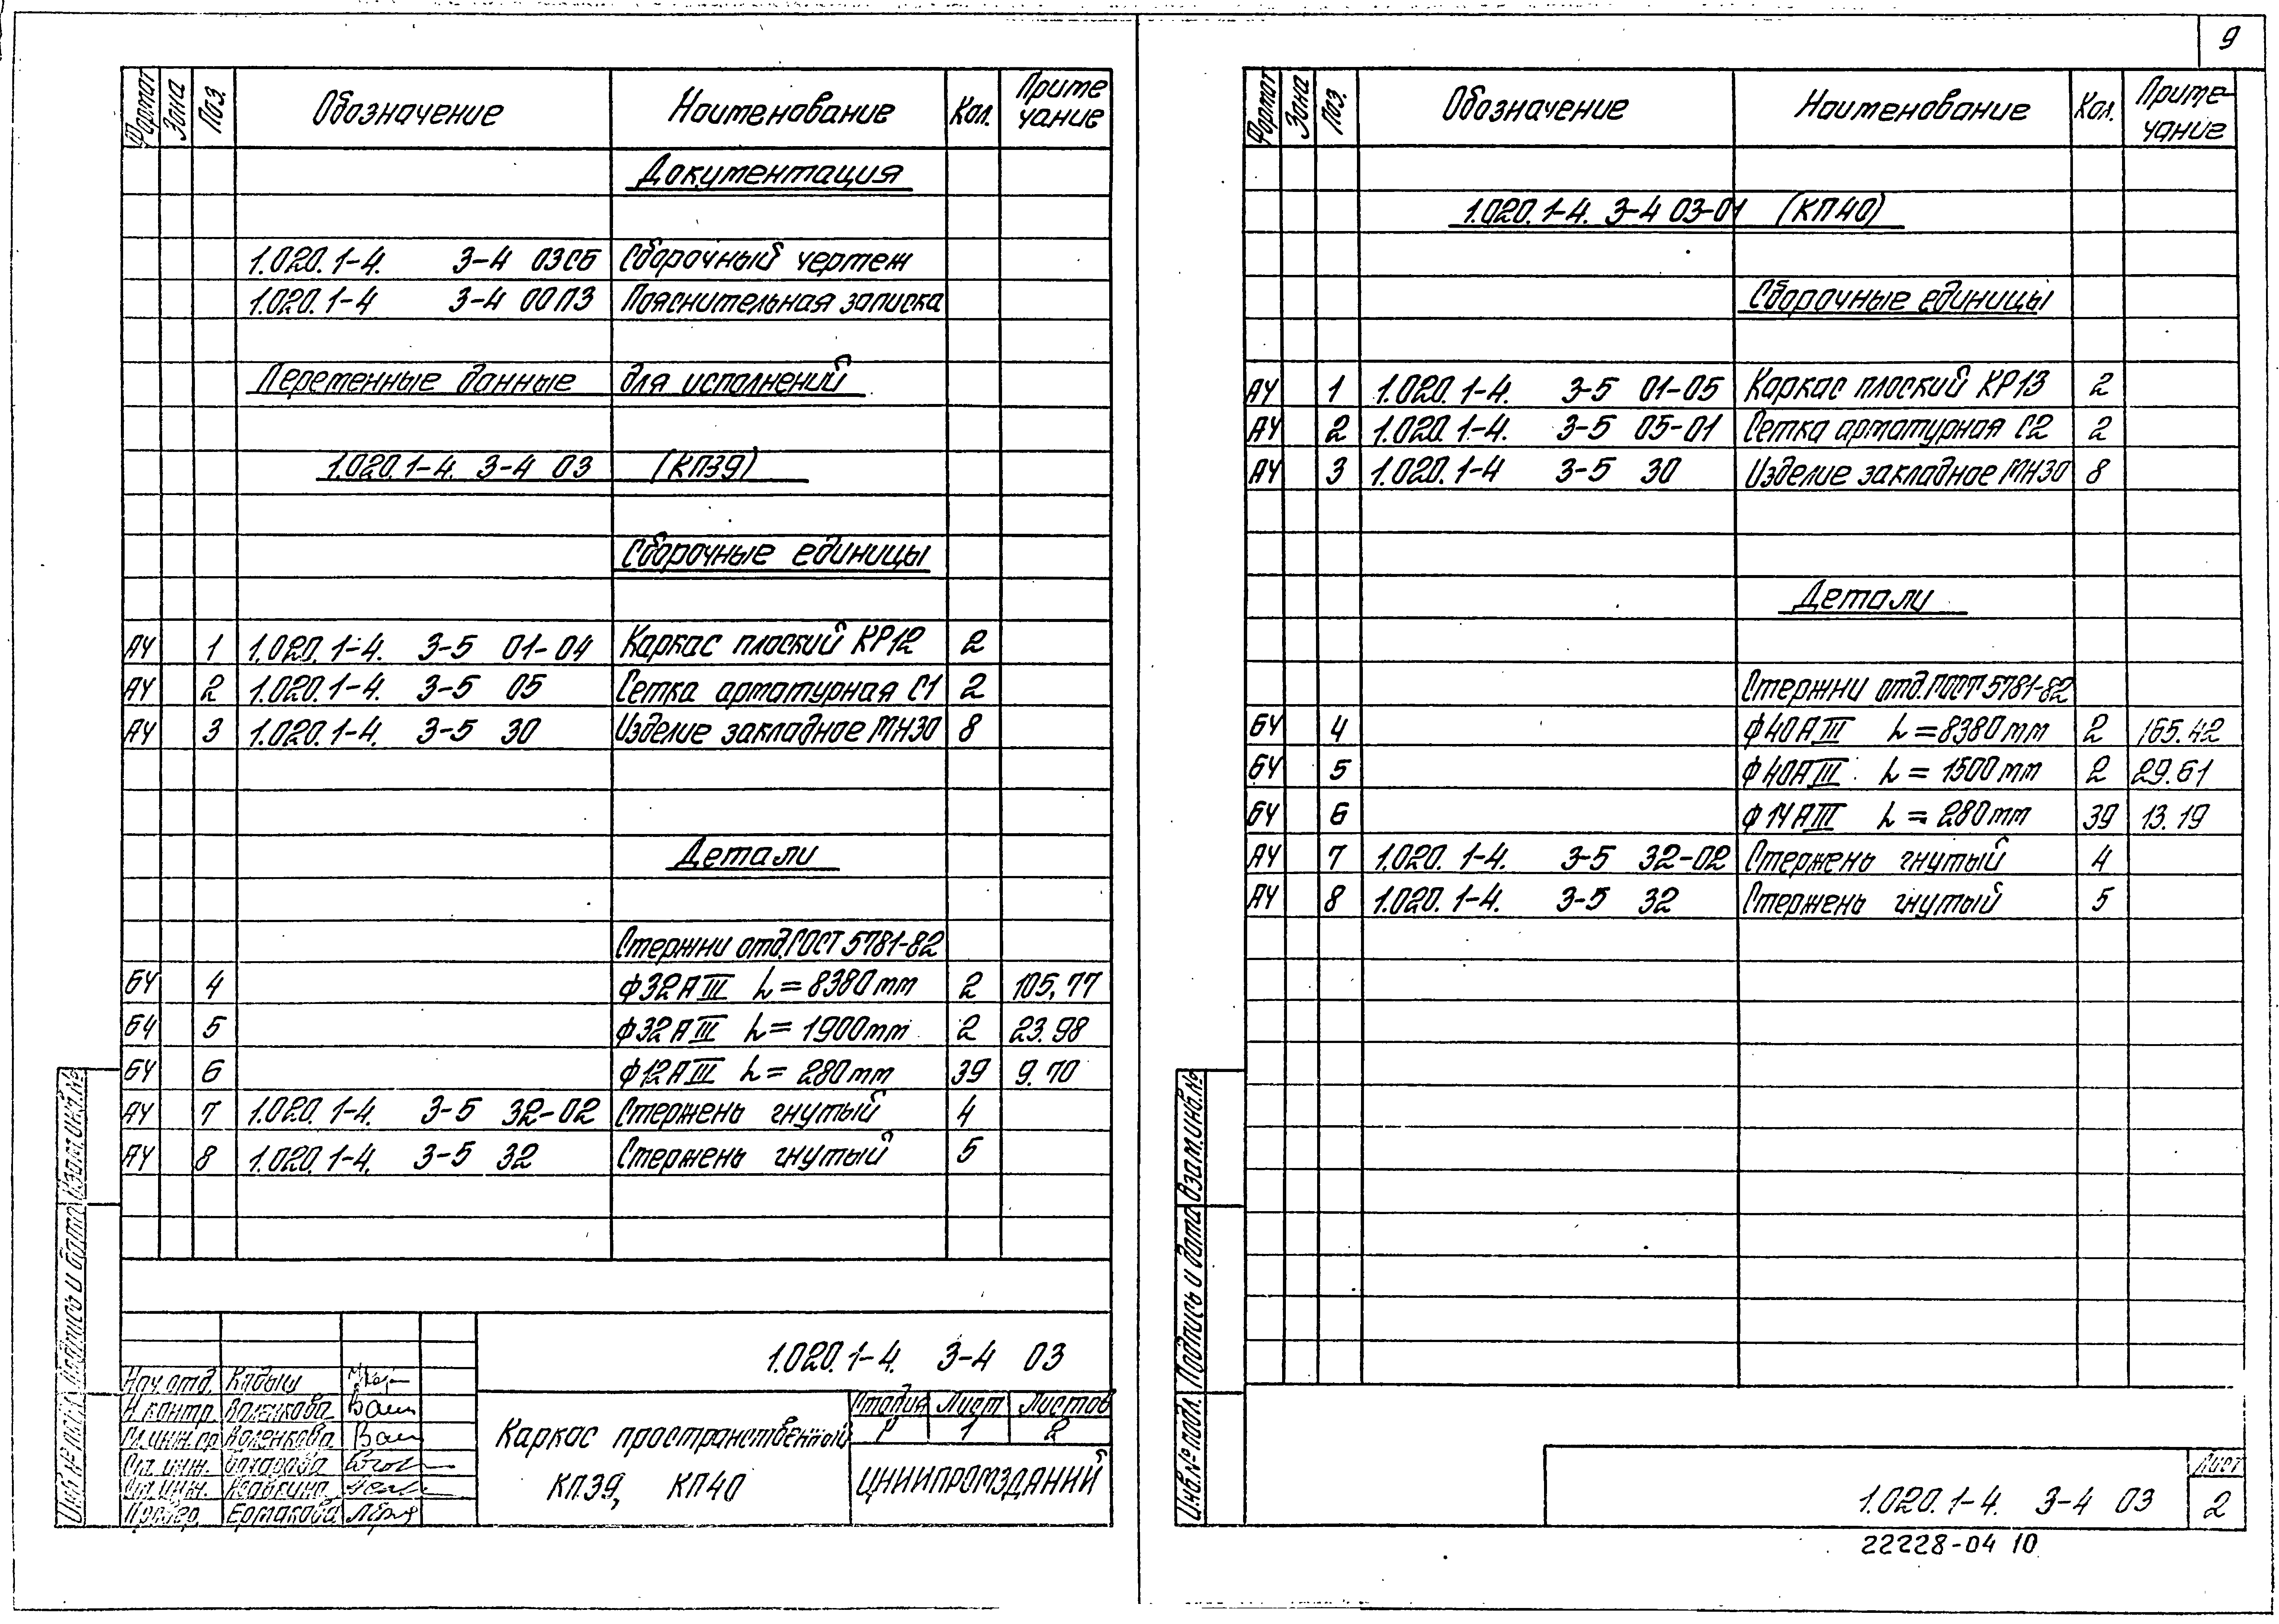 9
Формат Зона Поз. Обозначение Наименование Кол. Приме чание
Документация
1.020.1-4. 3-4 03СБ Сборочный чертеж
1.020.1-4 3-4 00ПЗ Пояснительная записка
Переменные данные для исполнений
1.020.1-4. 3-4 03 (КП39)
Сборочные единицы
А4 1 1.020.1-4. 3-5 01-04 Каркас плоский КР12 2
А4 2 1.020.1-4. 3-5 05 Сетка арматурная С1 2
А4 3 1.020.1-4. 3-5 30 Изделие закладное МН30 8
Детали
Стержни отд.ГОСТ 5781-82
БЧ 4 ф32АIII L=8380мм 2 105,77
БЧ 5 ф32АIII L=1900мм 2 23.98
БЧ 6 ф12АIII L=280мм 39 9.70
А4 7 1.020.1-4. 3-5 32-02 Стержень гнутый 4
А4 8 1.020.1-4. 3-5 32 Стержень гнутый 5
Инв.№ подл. Подпись и дата Взам.инв.№
1.020.1-4. 3-4 03
Нач.отд. Кадыш
Н.контр. Воленкова
Гл.инж.пр Воленкова
Ст.инж.
Ст.инж.
Провер. Ермакова
Каркас пространственный
КП39, КП40
Стадия Лист Листов
Р 1 2
ЦНИИПРОМЗДАНИЙ
Формат Зона Поз. Обозначение Наименование Кол. Приме-
чание
1.020.1-4. 3-4 03-01 (КП40)
Сборочные единицы
А4 1 1.020.1-4. 3-5 01-05 Каркас плоский КР13 2
А4 2 1.020.1-4. 3-5 05-01 Сетка арматурная С2 2
А4 3 1.020.1-4 3-5 30 Изделие закладное МН30 8
Детали
Стержни отд.ГОСТ 5781-82
БЧ 4 ф40АIII L=8380мм 2 165.42
БЧ 5 ф40АIII L=1500мм 2 29.61
БЧ 6 ф14АIII L=280мм 39 13.19
А4 7 1.020.1-4. 3-5 32-02 Стержень гнутый 4
А4 8 1.020.1-4. 3-5 32 Стержень гнутый 5
Инв.№ подл. Подпись и дата Взам.инв.№
1.020.1-4. 3-4 03
Лист
2
22228-04 10